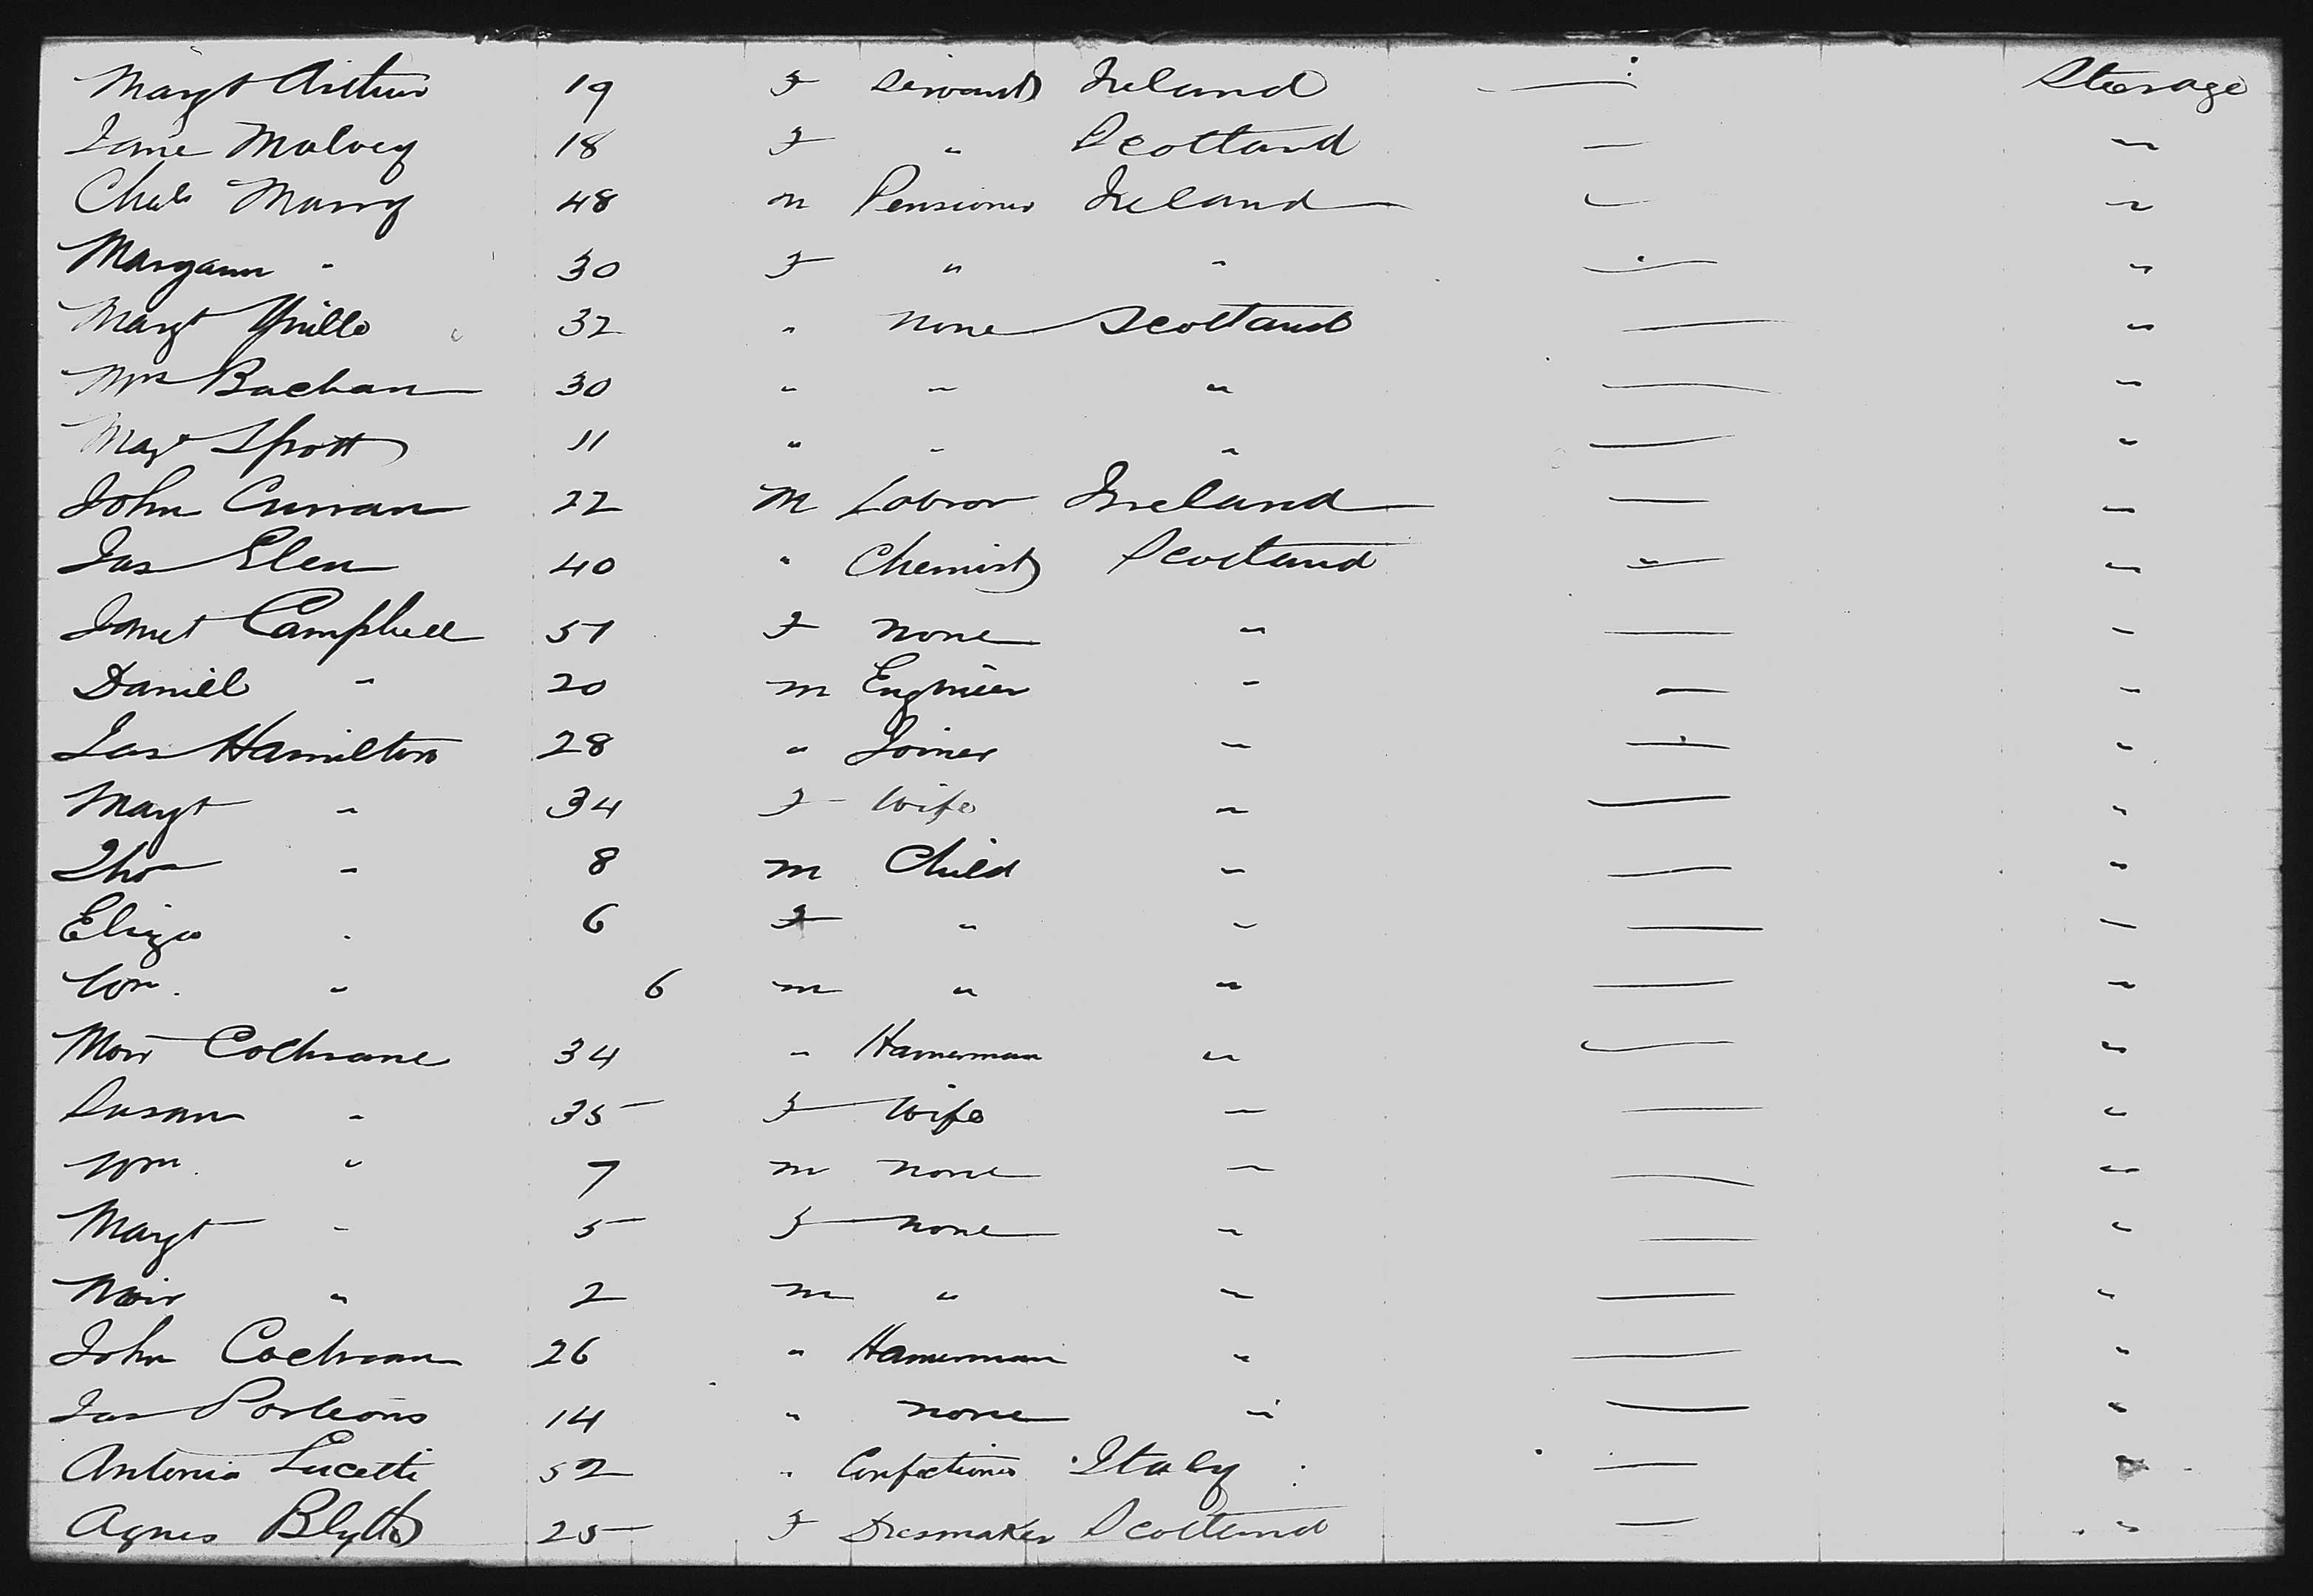 Margt Arthur 19 F Servant Ireland — Steerage
Jane Mulvey 18 F " Scotland — "
Chas Marry 48 m Pensioner Ireland — "
Margann " 30 F " " — "
Margt 32 " None Scotland — "
Mrs Buchan 30 " " " — "
Magt Sprott 11 " " " — "
John Curran 22 M Labror Ireland — "
Jas Glen 40 " Chemist Scotland — "
Janet Campbell 51 F none " — "
Daniel " 20 m Engineer " — "
Jas Hamilton 28 " Joiner " — "
Margt " 34 F Wife " — "
Tho " 8 m Child " — "
Eliza " 6 F " " — "
Wm. " 6 m " " — "
Moir Cochrane 34 " Hamerman " — "
Susan " 35 F Wife " — "
Wm. " 7 m none " — "
Margt " 5 F none " — "
Moir " 2 m " " — "
John Cochrane 26 " Hamerman " — "
Jas Porteous 14 " none " — "
Antonio Lucetti 52 " Confectioner Italy — "
Agnes Blyth 25 F Dresmaker Scotland — "